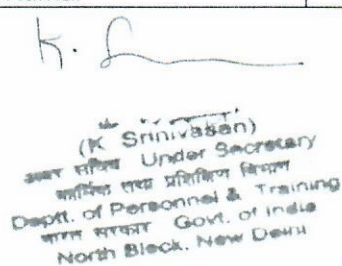 K.
(K Srinivasan)
अवर सचिव Under Secretary
कार्मिक तथा प्रशिक्षण विभाग
Deptt. of Personnel & Training
भारत सरकार Govt. of India
North Block, New Delhi